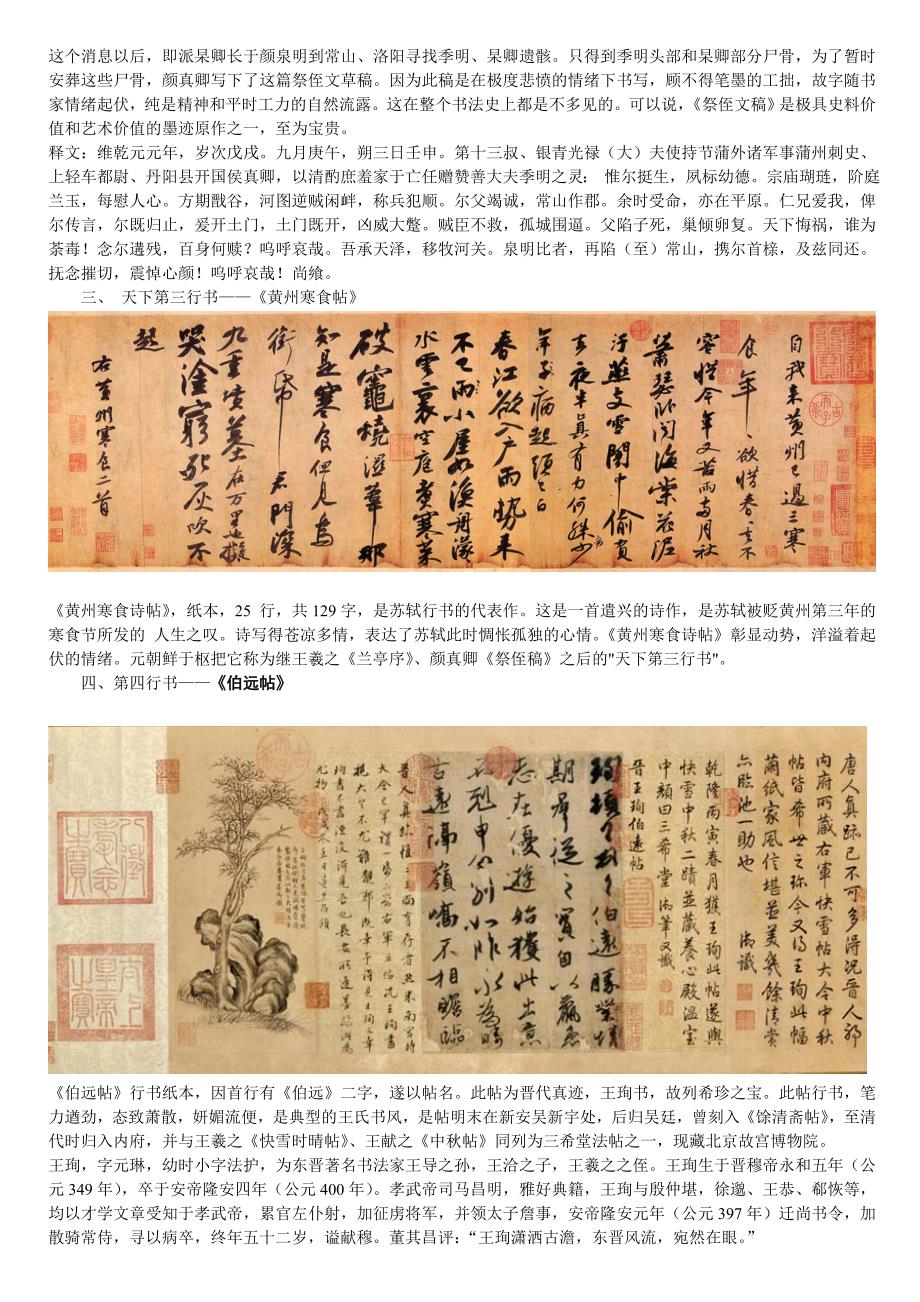 这个消息以后，即派杲卿长于颜泉明到常山、洛阳寻找季明、杲卿遗骸。只得到季明头部和杲卿部分尸骨，为了暂时
安葬这些尸骨，颜真卿写下了这篇祭侄文草稿。因为此稿是在极度悲愤的情绪下书写，顾不得笔墨的工拙，故字随书
家情绪起伏，纯是精神和平时工力的自然流露。这在整个书法史上都是不多见的。可以说，《祭侄文稿》是极具史料价
值和艺术价值的墨迹原作之一，至为宝贵。
释文：维乾元元年，岁次戊戌。九月庚午，朔三日壬申。第十三叔、银青光禄（大）夫使持节蒲外诸军事蒲州刺史、
上轻车都尉、丹阳县开国侯真卿，以清酌庶羞家于亡任赠赞善大夫季明之灵： 惟尔挺生，夙标幼德。宗庙瑚琏，阶庭
兰玉，每慰人心。方期戬谷，河图逆贼闲衅，称兵犯顺。尔父竭诚，常山作郡。余时受命，亦在平原。仁兄爱我，俾
尔传言，尔既归止，爰开土门，土门既开，凶威大蹙。贼臣不救，孤城围逼。父陷子死，巢倾卵复。天下悔祸，谁为
荼毒！念尔遘残，百身何赎？呜呼哀哉。吾承天泽，移牧河关。泉明比者，再陷（至）常山，携尔首榇，及兹同还。
抚念摧切，震悼心颜！呜呼哀哉！尚飨。
三、 天下第三行书——《黄州寒食帖》
自我来黄州已过三寒
食年〻欲惜春〻去不
容惜今年又苦雨两月秋
萧瑟卧闻海棠花泥
污燕支雪闇中偷负
去夜半真有力何殊少
年子病起须已白
春江欲入户雨势来
不已雨小屋如渔舟濛〻
水云里空庖煮寒菜
破竈烧湿苇那
知是寒食但见乌
衔帋君门深
九重坟墓在万里也拟
哭塗穷死灰吹不
起
右黄州寒食二首
《黄州寒食诗帖》，纸本，25 行，共 129 字，是苏轼行书的代表作。这是一首遣兴的诗作，是苏轼被贬黄州第三年的
寒食节所发的 人生之叹。诗写得苍凉多情，表达了苏轼此时惆怅孤独的心情。《黄州寒食诗帖》彰显动势，洋溢着起
伏的情绪。元朝鲜于枢把它称为继王羲之《兰亭序》、颜真卿《祭侄稿》之后的"天下第三行书"。
四、第四行书——《伯远帖》
唐人真跡已不可多得况晋人耶
内府所藏右军快雪帖大令中秋
帖皆希世之珍今又得王珣此幅
茧纸家风信堪並美几馀清赏
亦临池一助也 御識
乾隆丙寅春月获王珣此帖遂与
快雪中秋二蹟並藏养心殿温室
中颜曰三希堂御笔又識
晋王珣伯远帖
珣顿首〻伯远胜业情
期群从之宝自以羸患
志在优游始获此出意
不剋申分别如昨永为畴
古远隔岭峤不相瞻临
《伯远帖》行书纸本，因首行有《伯远》二字，遂以帖名。此帖为晋代真迹，王珣书，故列希珍之宝。此帖行书，笔
力遒劲，态致萧散，妍媚流便，是典型的王氏书风，是帖明末在新安吴新宇处，后归吴廷，曾刻入《馀清斋帖》，至清
代时归入内府，并与王羲之《快雪时晴帖》、王献之《中秋帖》同列为三希堂法帖之一，现藏北京故宫博物院。
王珣，字元琳，幼时小字法护，为东晋著名书法家王导之孙，王洽之子，王羲之之侄。王珣生于晋穆帝永和五年（公
元 349 年），卒于安帝隆安四年（公元 400 年）。孝武帝司马昌明，雅好典籍，王珣与殷仲堪，徐邈、王恭、郗恢等，
均以才学文章受知于孝武帝，累官左仆射，加征虏将军，并领太子詹事，安帝隆安元年（公元 397 年）迁尚书令，加
散骑常侍，寻以病卒，终年五十二岁，谥献穆。董其昌评：“王珣潇洒古澹，东晋风流，宛然在眼。”